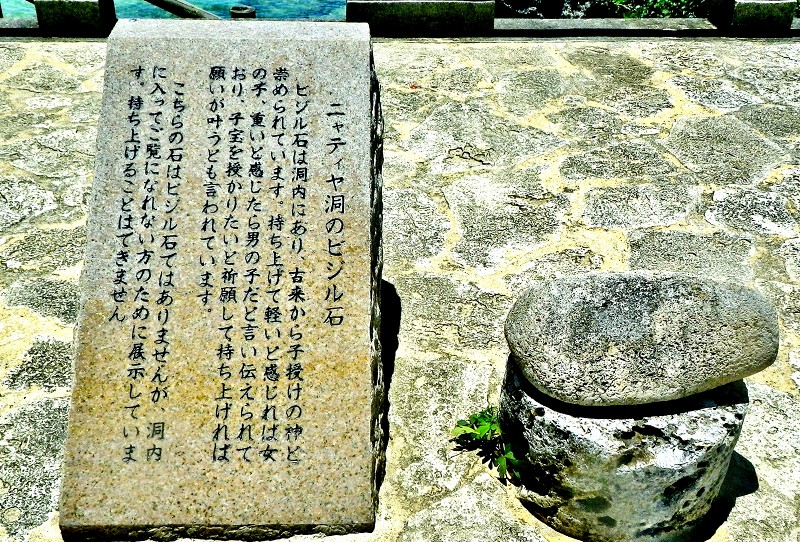 ニャティヤ洞のビジル石
ビジル石は洞内にあり、古来から子授けの神と
崇められています。持ち上げて軽いと感じれば女
の子、重いと感じたら男の子だと言い伝えられて
おり、子宝を授かりたいと祈願して持ち上げれば
願いが叶うとも言われています。
こちらの石はビジル石ではありませんが、洞内
に入ってご覧になれない方のために展示していま
す。持ち上げることはできません